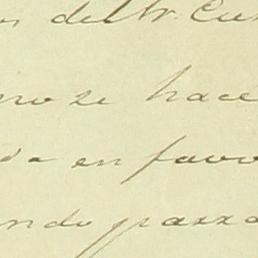 del Sr. Cu
no se hace
da en favo
ndo passa